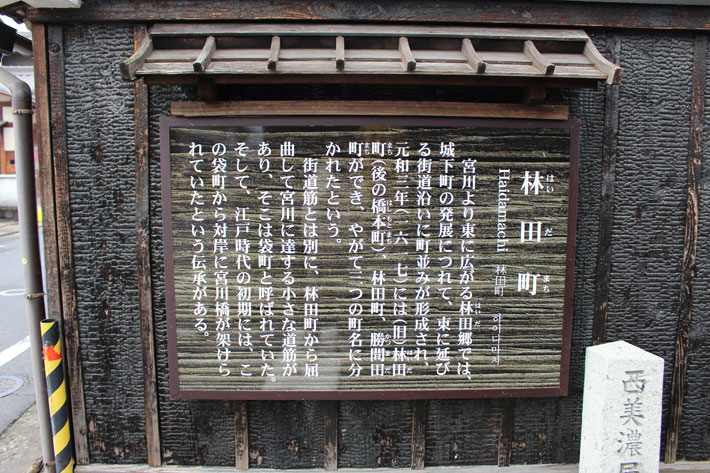 林田町
はいだまち
Haidamachi
林田町
하이다마치
宮川より東に広がる林田郷では、
城下町の発展につれて、東に延び
る街道沿いに町並みが形成され、
元和三年(一六一七)には(旧)林田
町(後の橋本町)、林田町、勝間田
町ができ、やがて二つの町名に分
かれたという。
街道筋とは別に、林田町から屈
曲して宮川に達する小さな道筋が
あり、そこは袋町と呼ばれていた。
そして、江戸時代の初期には、こ
の袋町から対岸に宮川橋が架けら
れていたという伝承がある。
西美濃